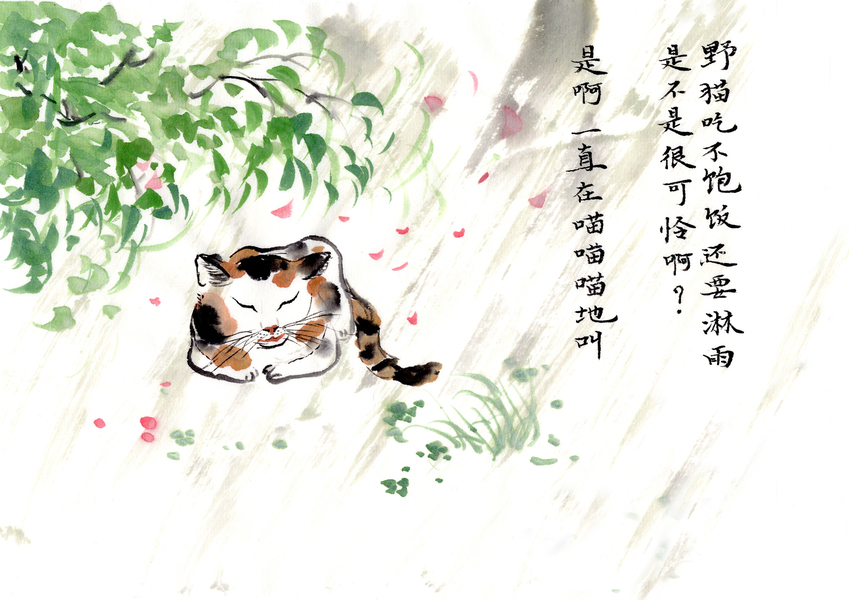 野猫吃不饱饭还要淋雨
是不是很可怜啊？
是啊 一直在喵喵喵地叫